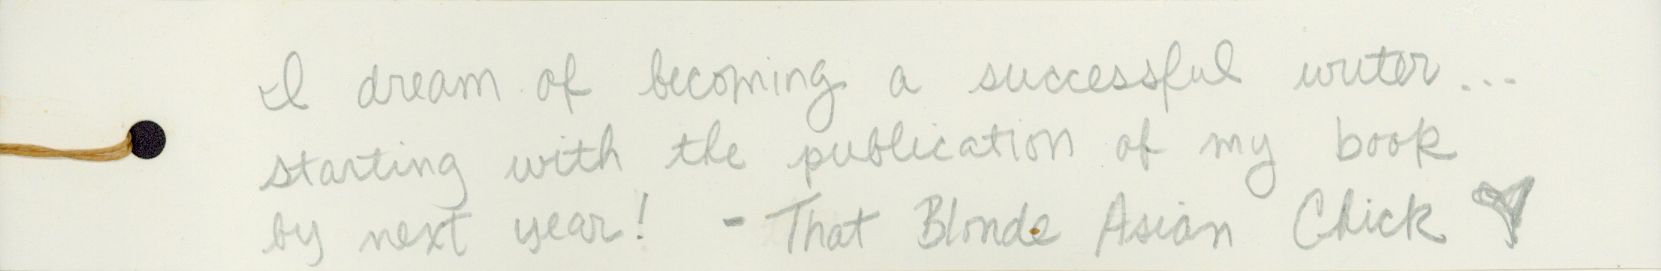 I dream of becoming a successful writer...
starting with the publication of my book
by next year! - That Blonde Asian Chick